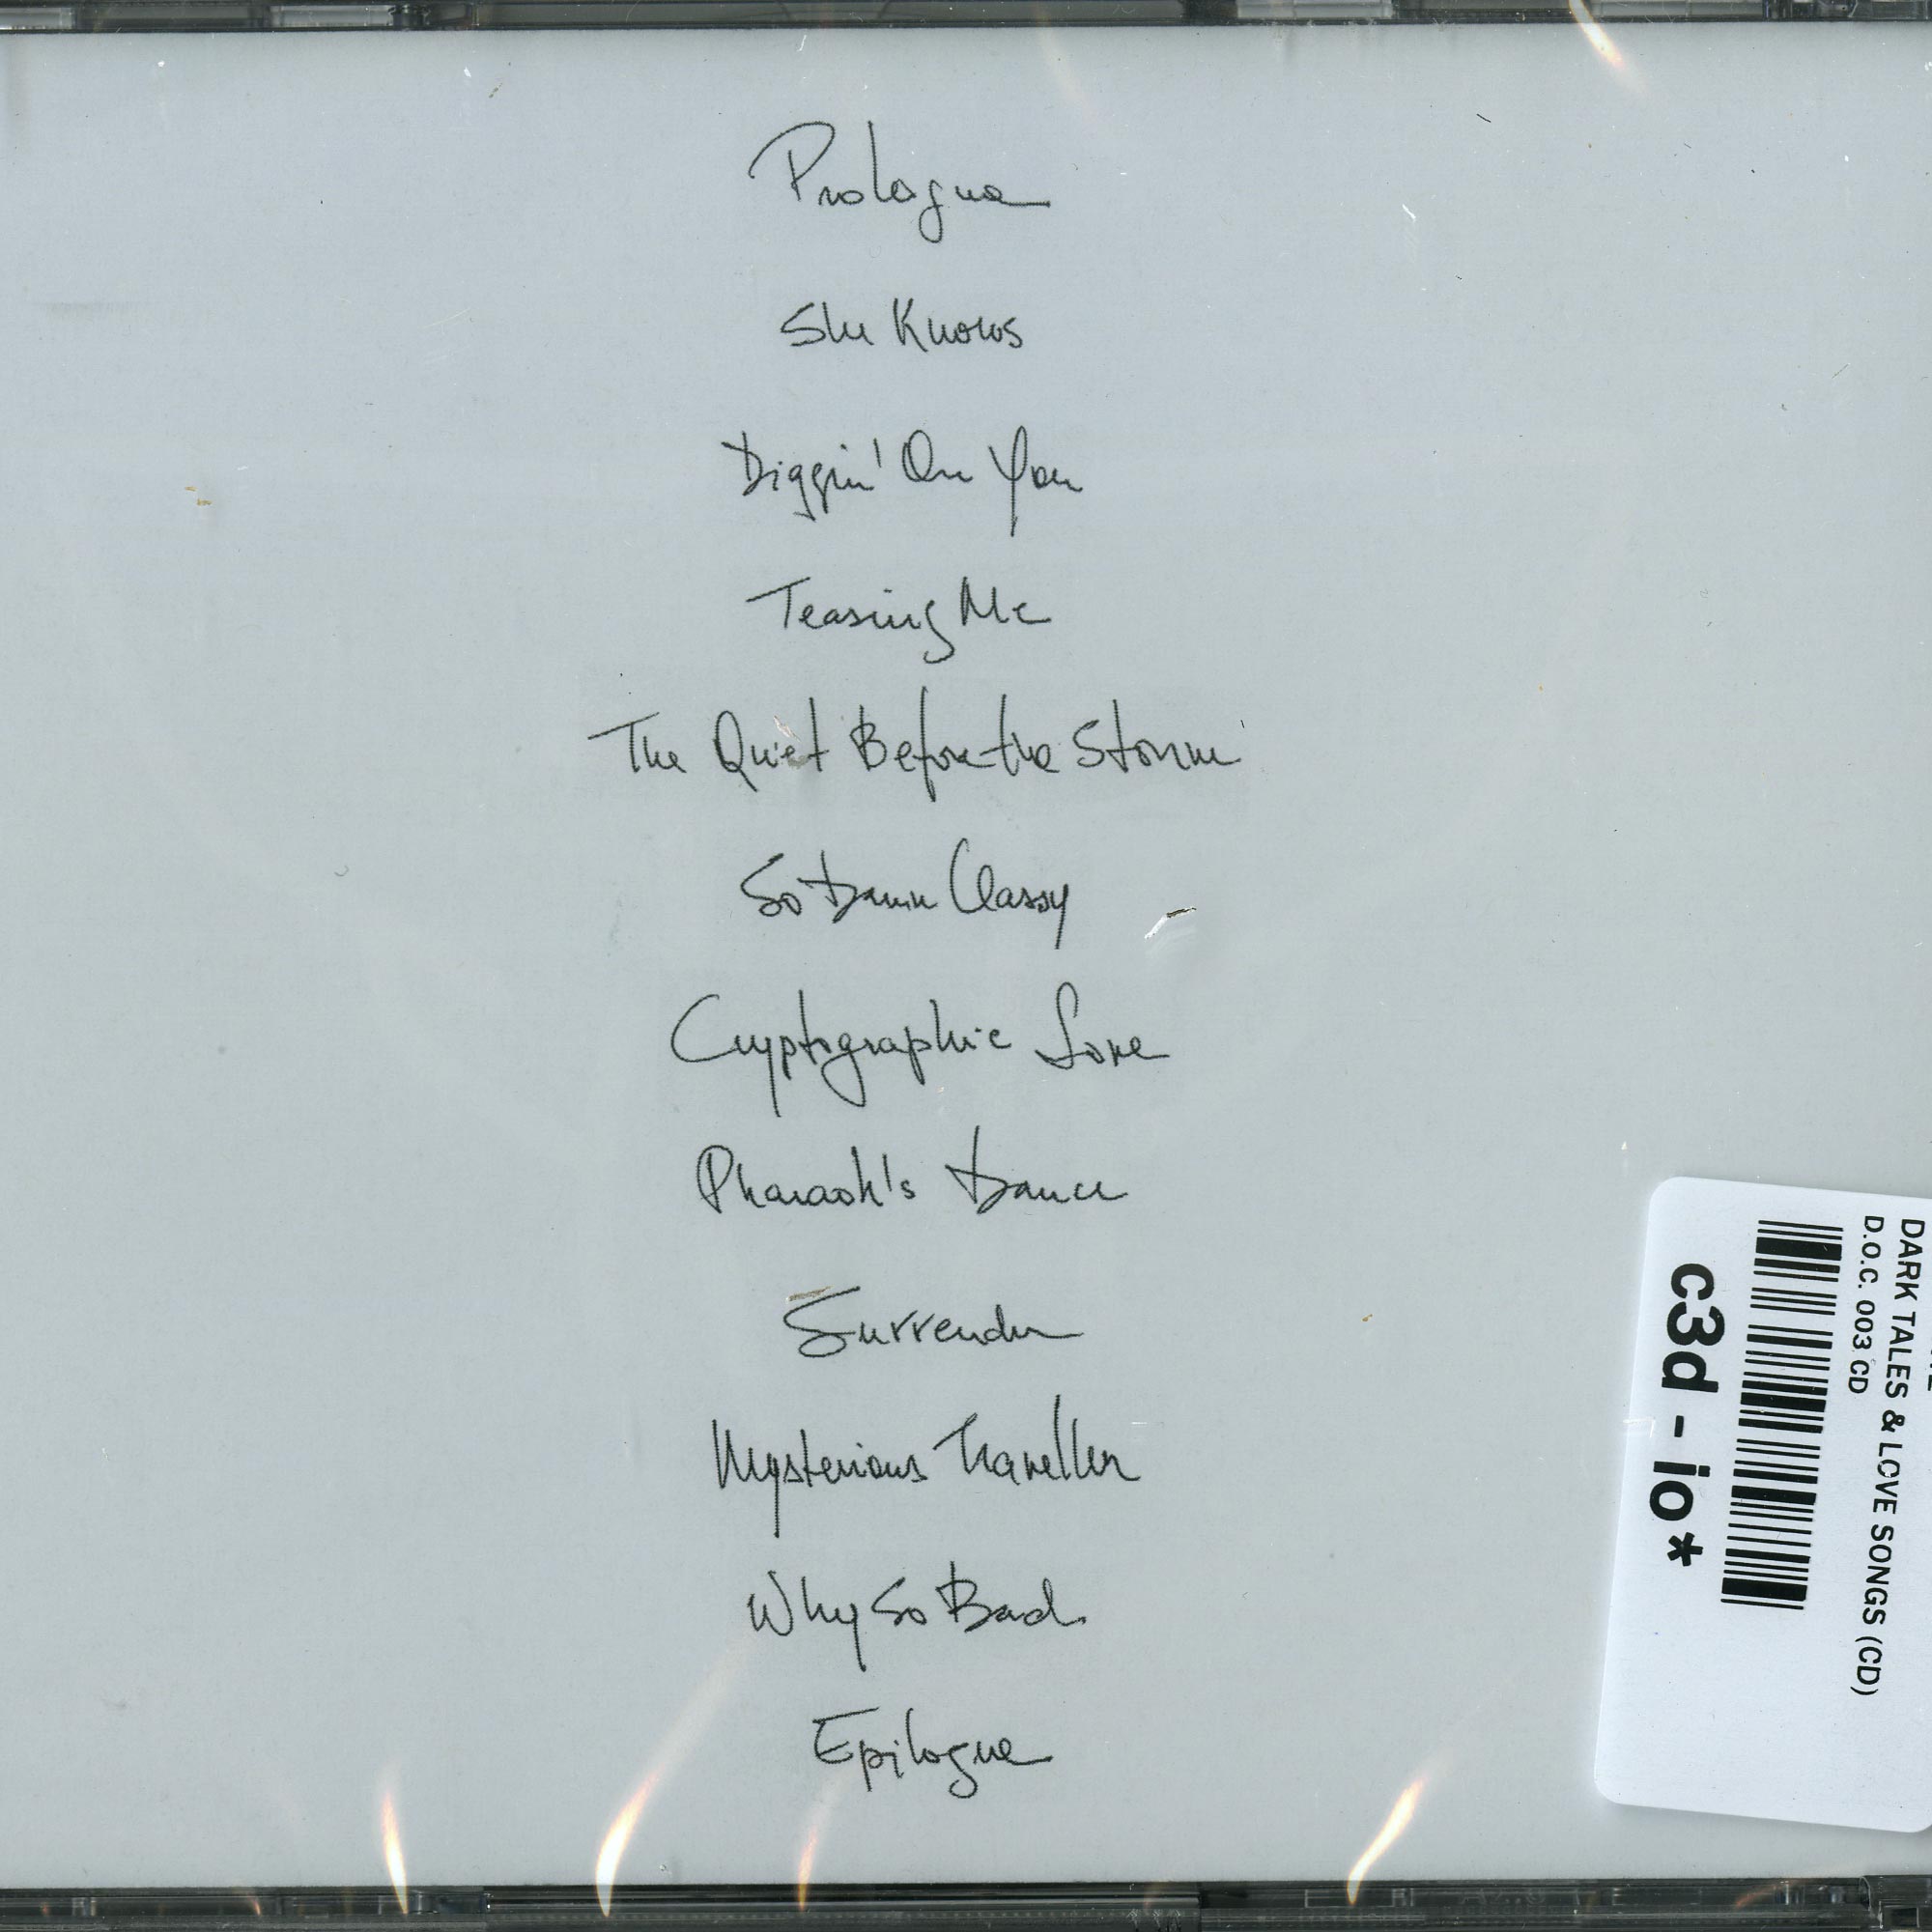 Prologue
She Knows
Diggin' On You
Teasing Me
The Quiet Before the Storm
So Damn Classy
Cryptographic Love
Pharaoh's Dance
Surrender
Mysterious Traveller
Why So Bad
Epilogue
DARK TALES & LOVE SONGS (CD)
D.O.C. 003 CD
c3d - io*